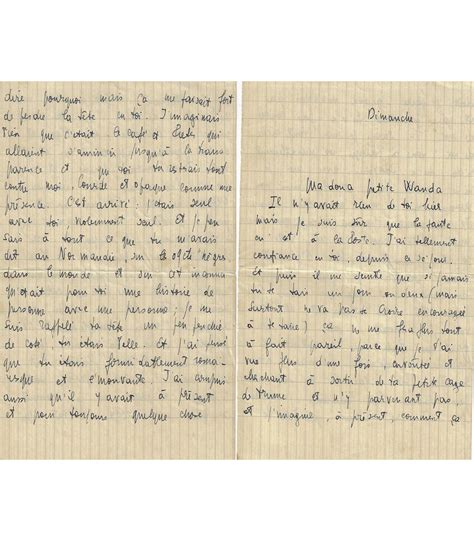 dire pourquoi mais ça me faisait fort
de perdre la tête en toi. J'imaginais
que c'était le café et qui
allaient s'amincir jusqu'à la trans
parence et que toi tu restais tout
contre moi lourde et opaque comme une
présence. C'est arrivé : j'étais seul
avec toi, violemment seul. Et je pen
sais à tout ce que tu m'avais
dit au Nor mandie, sur le côté
dans le monde et son inconnu
qu'était pour toi une histoire de
personne avec une personne ; je me
suis rappelé ta tête un peu penchée
de côté, tu étais belle. Et j'ai pensé
que tu étais formidablement roma-
nesque et émouvante. J'ai compris
aussi qu'il y avait à présent
et pour toujours quelque chose
Dimanche
Ma petite Wanda
Il n'y avait rien de toi hier
mais je suis sûr que la faute
en est à la poste. J'ai tellement
confiance en toi, depuis ce séjour.
Et puis il me semble que si jamais
tu te tais un jour ou deux (mais
surtout ne va pas te croire encouragée
à te taire) ça ne me fera plus tout
à fait pareil, parce que je t'ai
vue, plus d'une fois, envoûtée et
cherchant à sortir de ta petite cage
de verre et n'y parvenant pas,
et j'imagine, à présent, comment ça